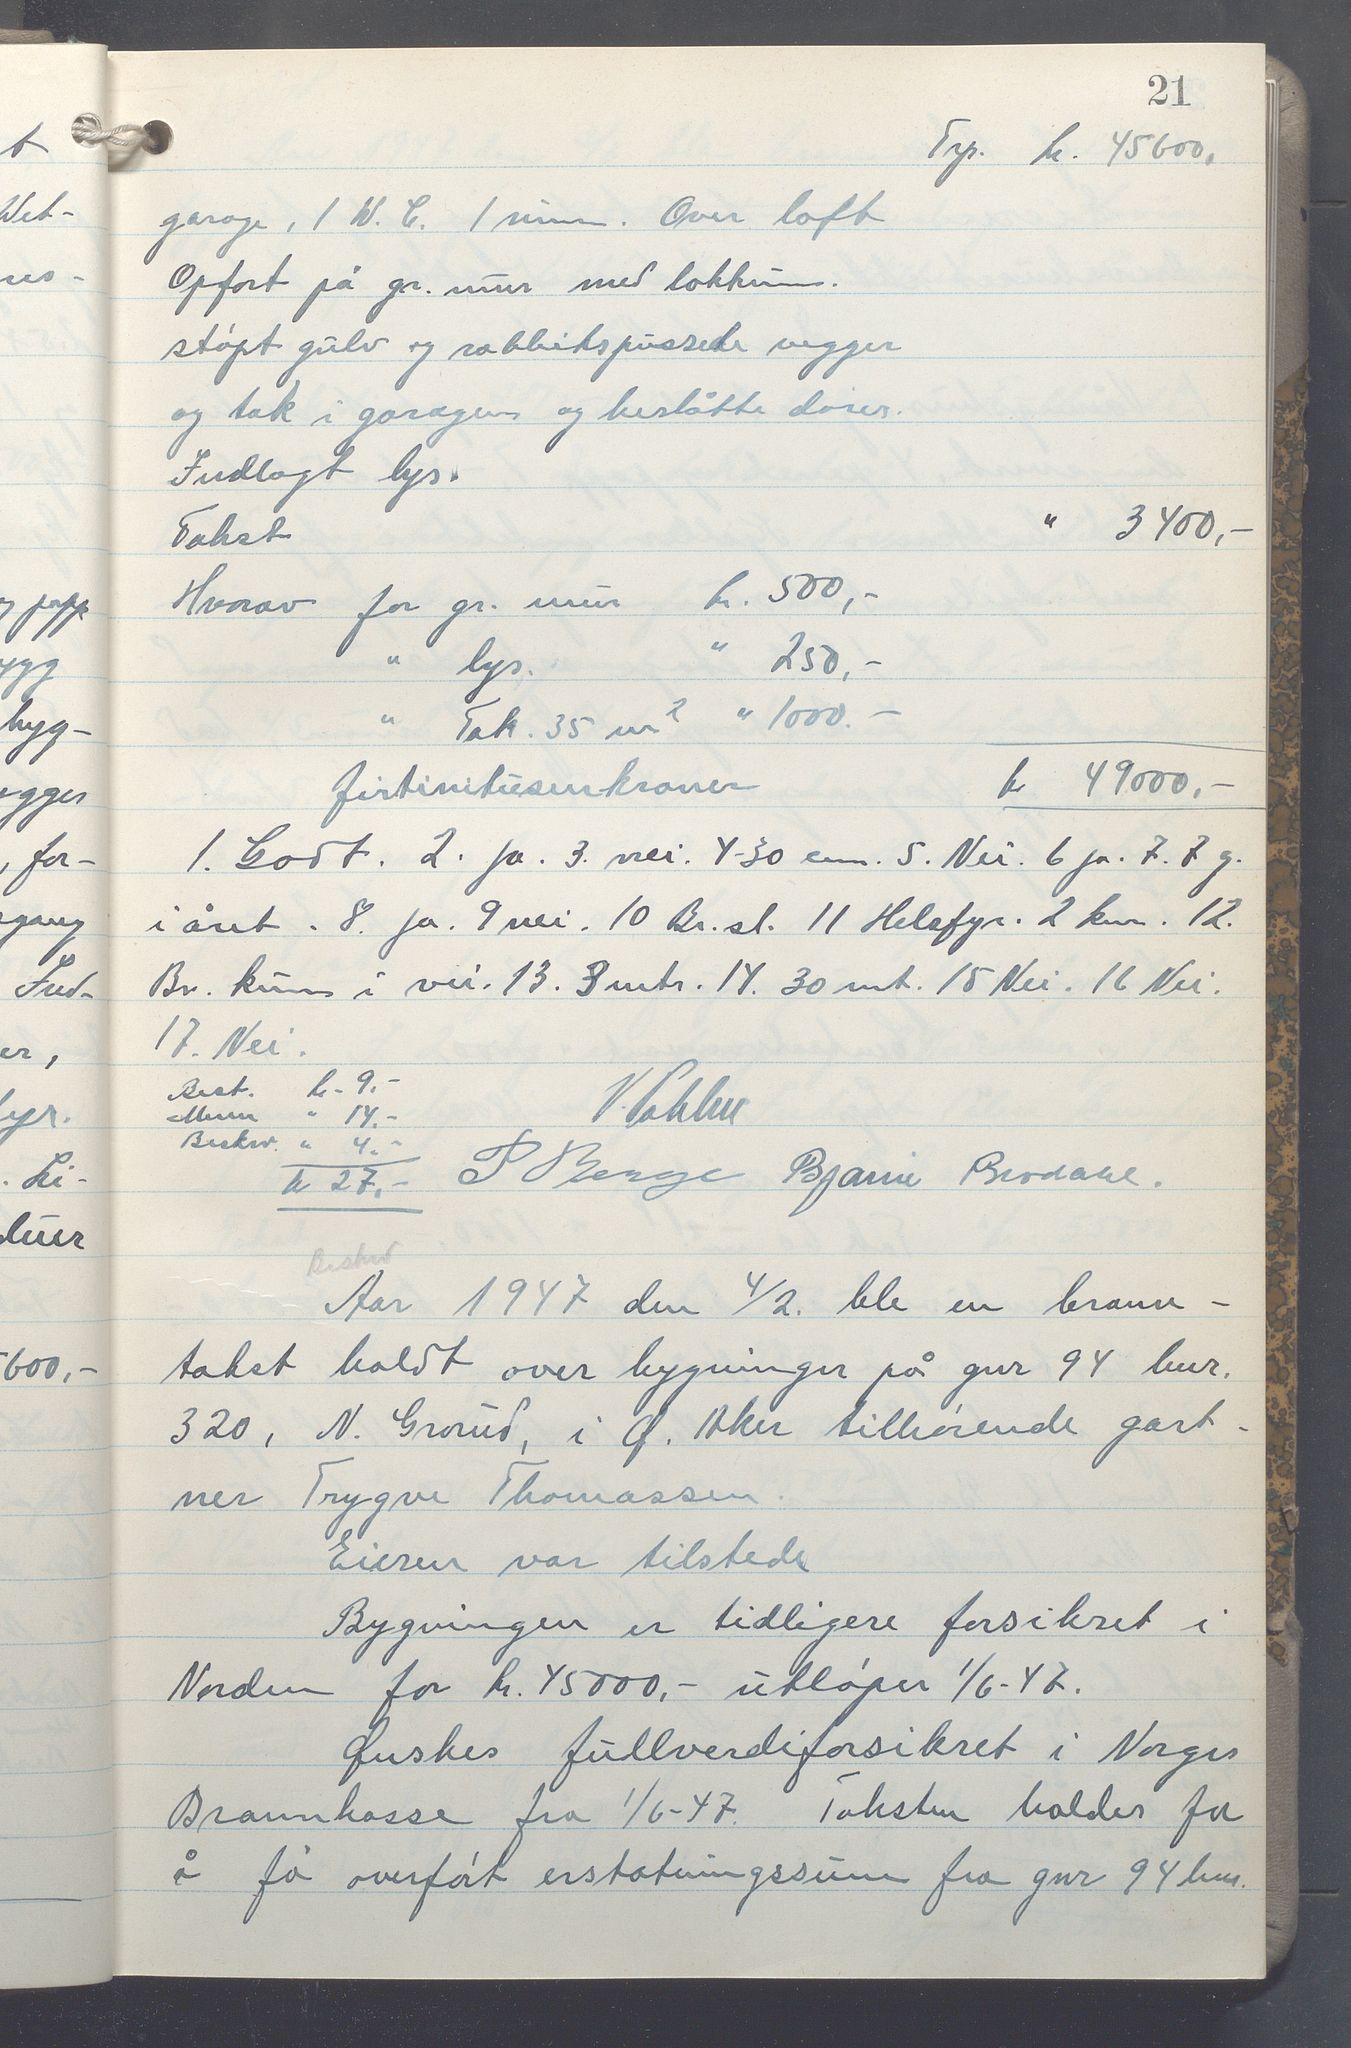 21
Trp. kr. 45600,
garage, 1 W.C. 1 rum. Over loft
Opført på gr. mur med
støpt gulv og rabbitspussede vegger
og tak i garagen og beslåtte dører.
Indlagt lys.
Takst " 3400,-
Hvorav for gr. mur kr. 500,-
" lys. " 250,-
" Tak. 35 m² " 1000.-
firtinitusenkroner kr 49000,-
1. Godt. 2. ja. 3. nei. 4-30 cm. 5. Nei. 6 ja. 7. 7 g.
i året. 8. ja. 9 nei. 10 Br.sl. 11 Helsfyr. 2 km. 12.
Br. kum i vei. 13. 3 mtr. 14. 30 mt. 15 Nei. 16 Nei.
17. Nei.
Best. kr. 9.-
Menn " 14,-
Beskrv. " 4.-
kr 27,-
P Berge Bjarne Brodahl.
Beskrd
Aar 1947 den 4/2. ble en brann-
takst holdt over bygninger på gnr 94 bnr.
320, N. Grorud, i Ø. Aker tilhørende gart-
ner Trygve Thomassen.
Eieren var tilstede
Bygningen er tidligere forsikret i
Norden for kr. 45000,- utløper 1/6-47.
Ønskes fullverdiforsikret i Norges
Brannkasse fra 1/6-47. Taksten holdes for
å få overført erstatningssum fra gnr 94 bnr.
t
Wet-
res-
og papp
ygg
byg-
vegger
, for-
gang
Ind-
er,
lys.
. Li-
duer
5600,-